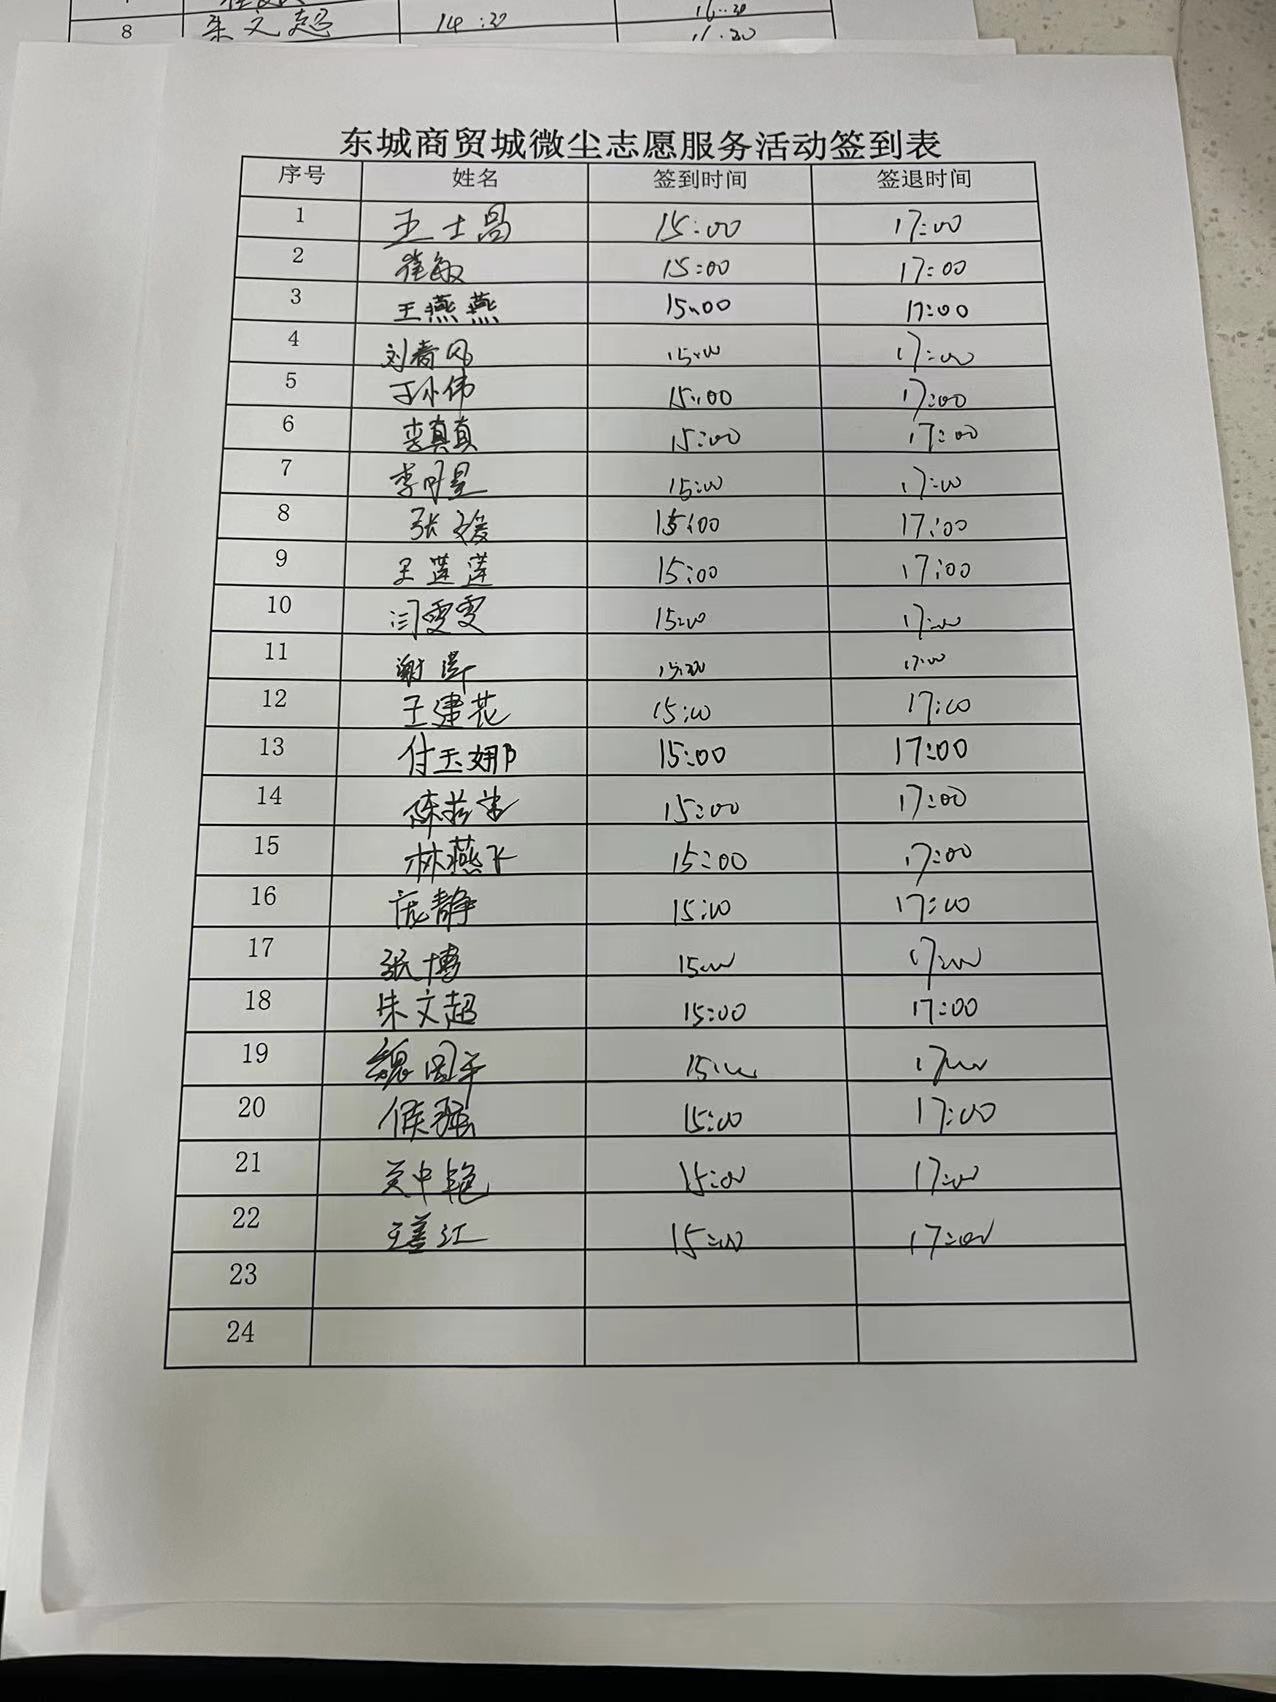 8 朱文超 14:30 16:30
东城商贸城微尘志愿服务活动签到表
序号 姓名 签到时间 签退时间
1 王士昌 15:00 17:00
2 崔敏 15:00 17:00
3 王燕燕 15:00 17:00
4 15:00 17:00
5 丁小伟 15:00 17:00
6 李真真 15:00 17:00
7 李明星 15:00 17:00
8 张媛 15:00 17:00
9 王莲莲 15:00 17:00
10 闫雯雯 15:00 17:00
11 15:00 17:00
12 王建花 15:00 17:00
13 付玉娜 15:00 17:00
14 15:00 17:00
15 林燕飞 15:00 17:00
16 庞静 15:00 17:00
17 张博 15:00 17:00
18 朱文超 15:00 17:00
19 魏国平 15:00 17:00
20 侯强 15:00 17:00
21 吴中艳 15:00 17:00
22 王善江 15:00 17:00
23
24